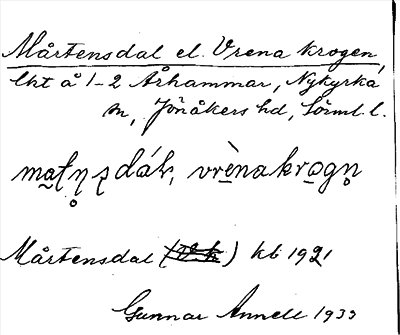 Mårtensdal el. Vrena krogen,
lht å 1-2 Århammar, Nykyrka
sn, Jönåkers hd, Sörml. l.
mat̥ņʂdáɫ, vrènakrogn̥
Mårtensdal () kb 1921
Gunnar Annell 1933